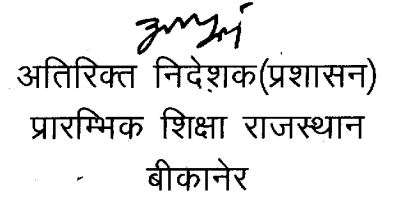 अतिरिक्त निदेशक(प्रशासन)
प्रारम्भिक शिक्षा राजस्थान
बीकानेर